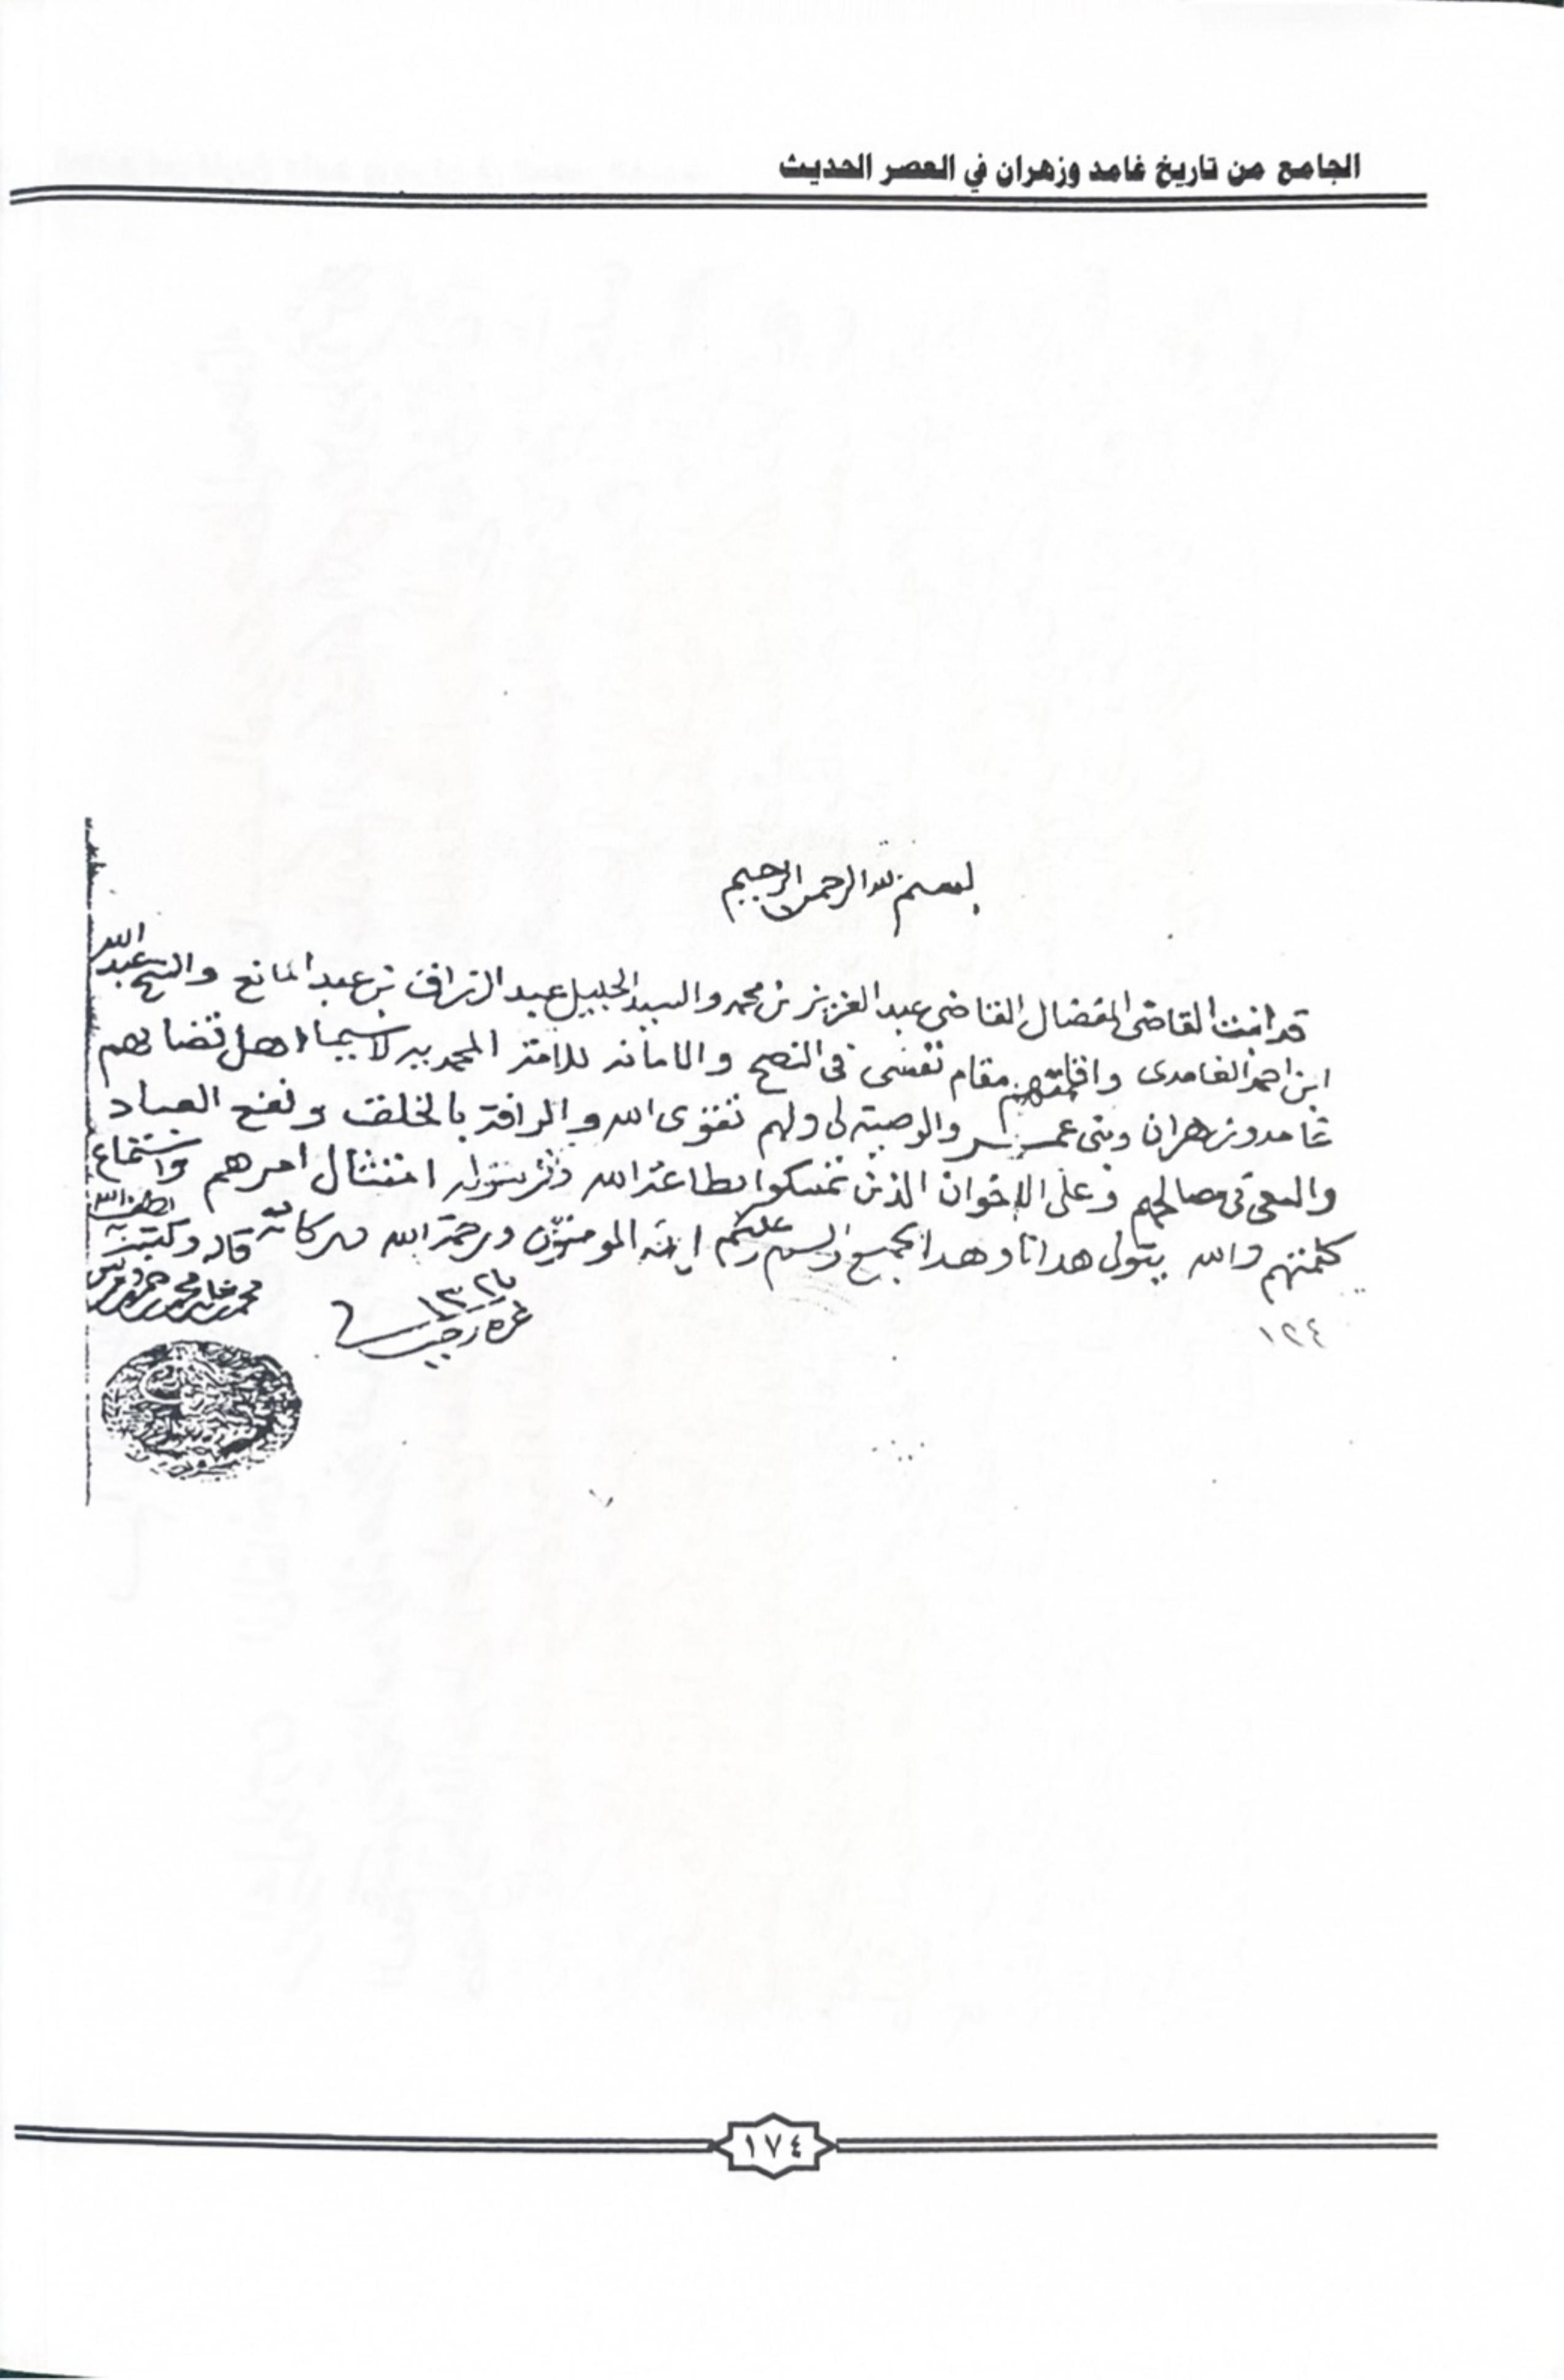 الجامع من تاريخ غامد وزهران في العصر الحديث
بسم الله الرحمن الرحيم
قد اقمت القاضي المفضال القاضي عبد العزيز بن محمد والسيد الجليل عبد الرزاق بن عبد المانع والشيخ عبد الله
ابن احمد الغامدى واقمتهم مقام نفسى فى النصح والامانه للامة المحمديه لاسيما اهل قضايهم
غامد وزهران وبنى عمر والوصية لى ولهم تقوى الله والرافة بالخلق ونفع العباد
والسعى فى مصالحهم وعلى الاخوان الذين تمسكوا بطاعة الله ورسوله امتثال امرهم واستماع
كلمتهم والله يتولى هدانا وهدا الجميع والسلام عليكم ايها المومنون ورحمة الله وبركاته قاله وكتبه
غره رجب ١٣٢٦
١٢٤
١٧٤